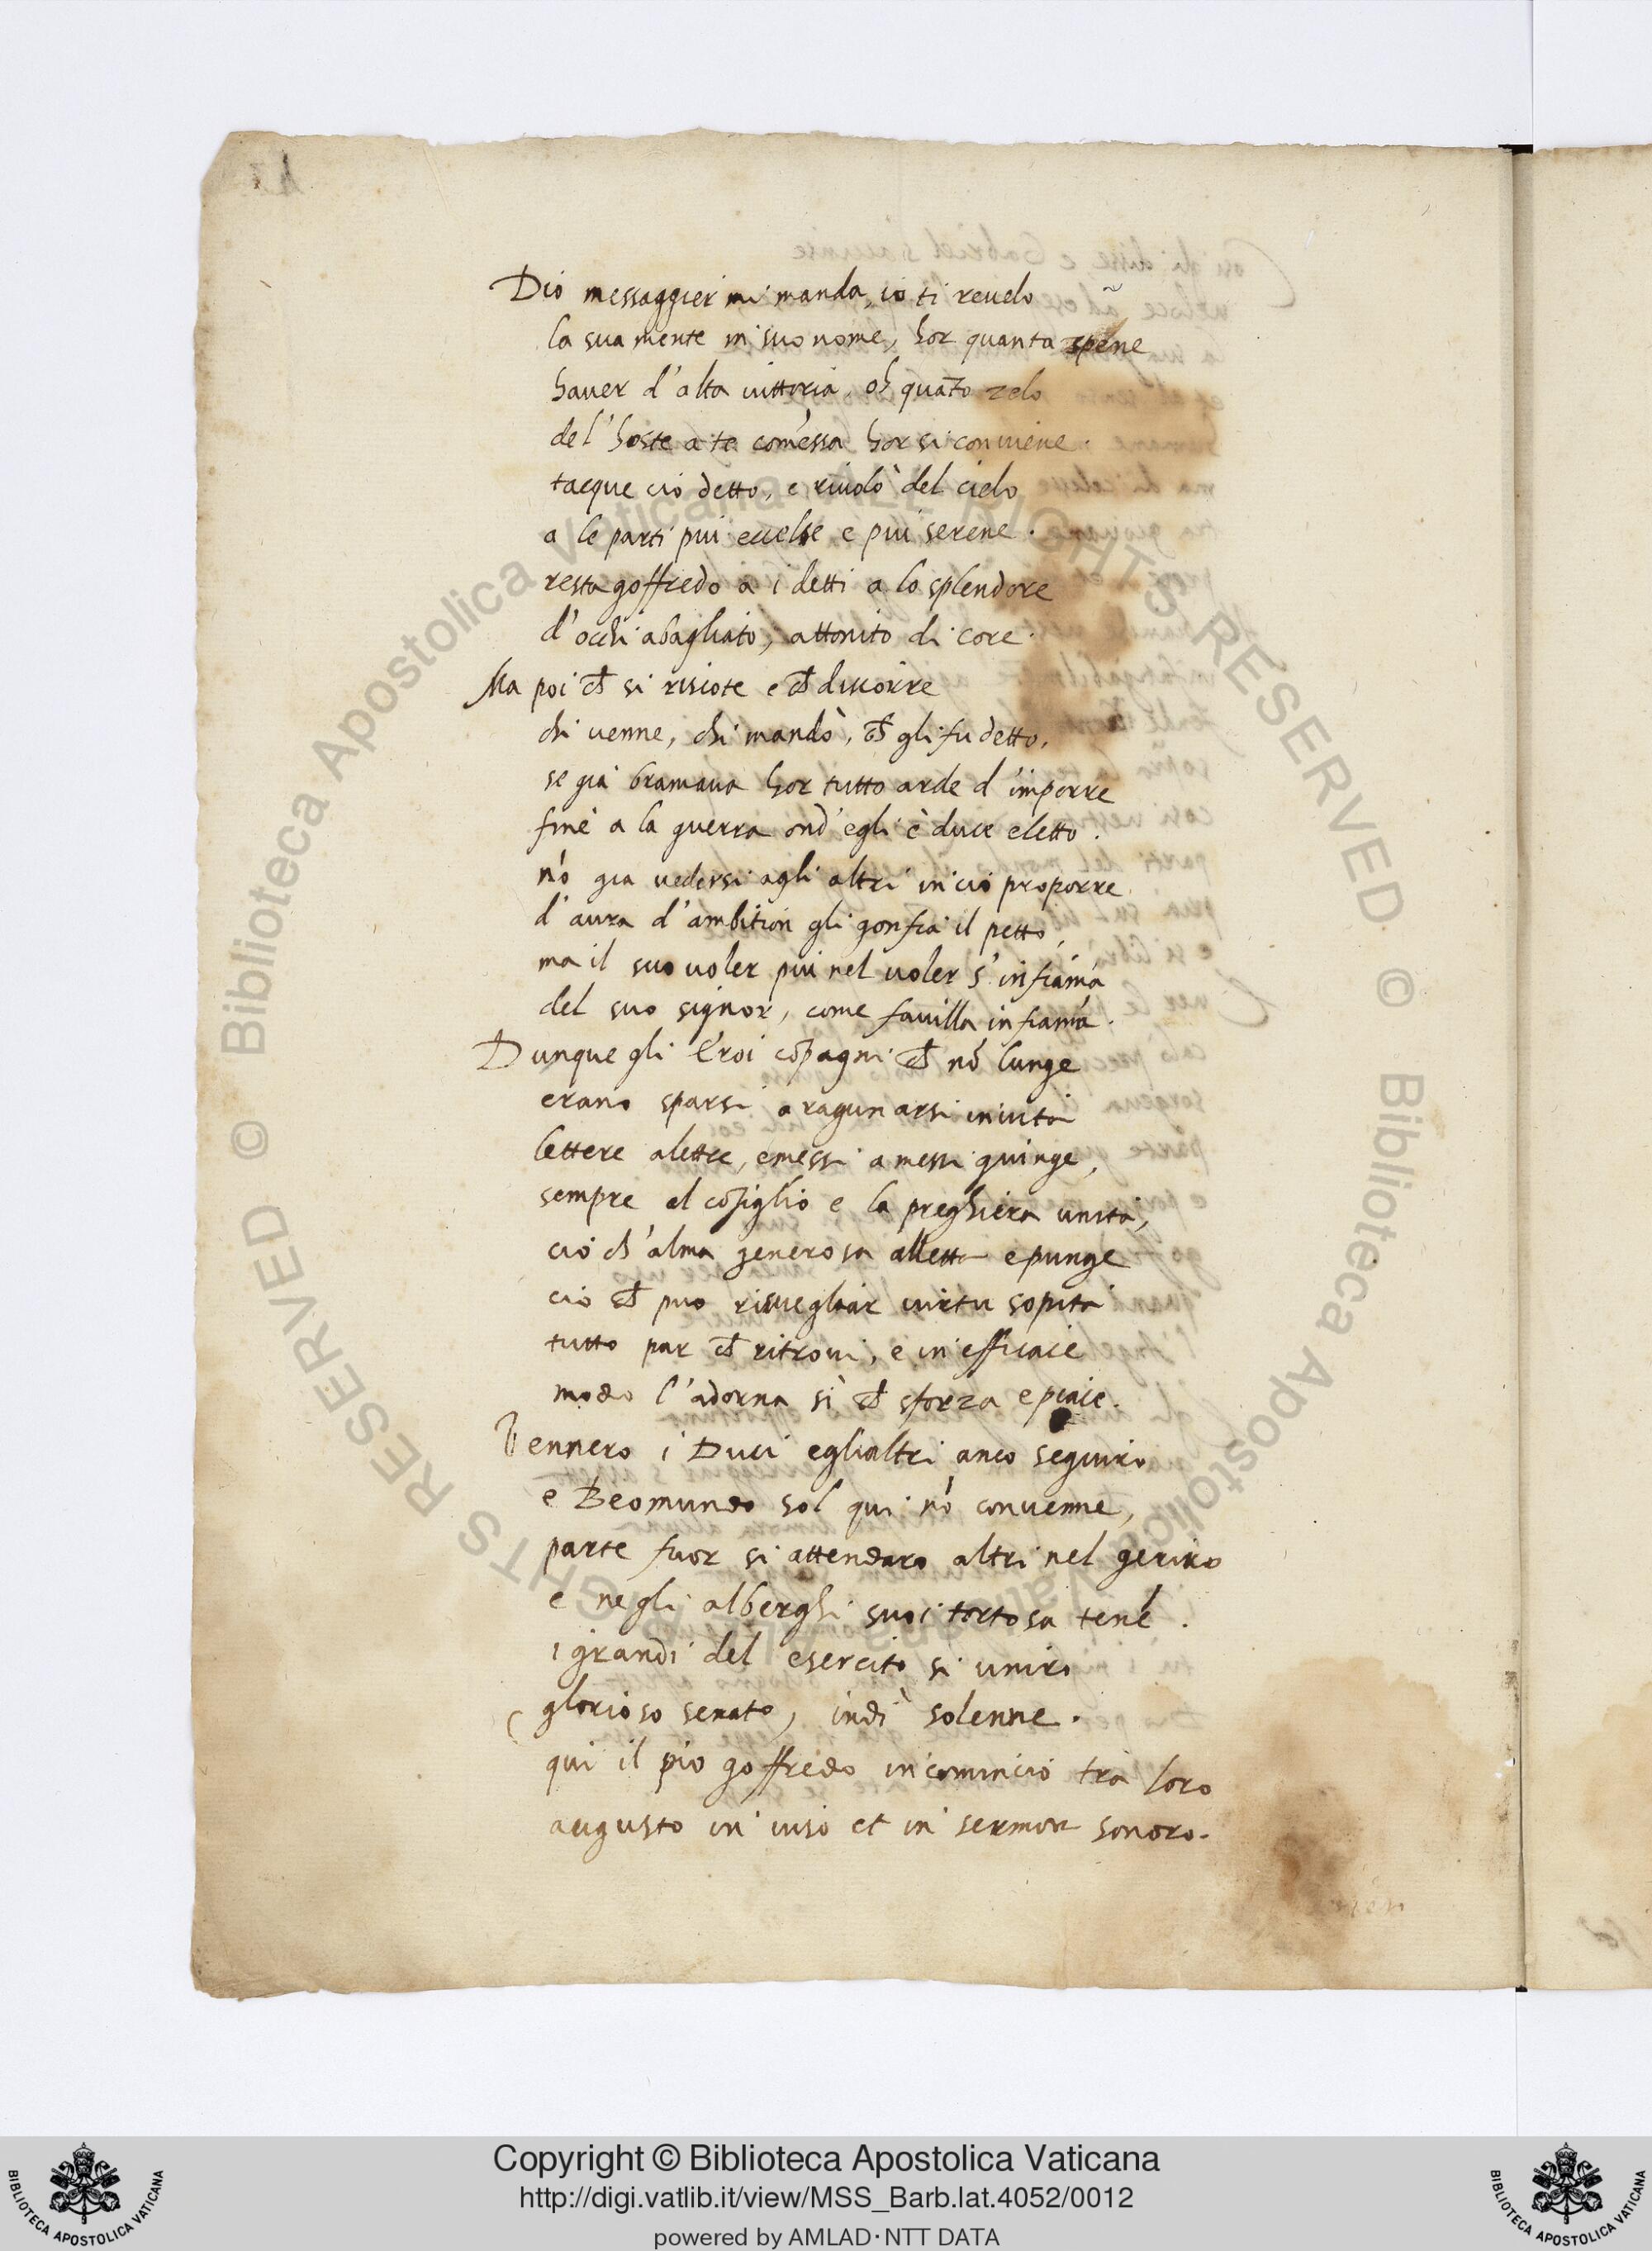 Dio messaggier mi manda, io ti reuelo
la sua mente in suo nome, hor quanta spene
hauer d'alta uittoria, oh quãto zelo
de l'hoste a te comessa hor si conuiene.
tacque ciò detto, e riuolò del cielo
a le parti piu eccelse e piu serene.
resta goffredo a i detti a lo splendore
d'occhi abagliato, attonito di core.
Ma poi ch̃ si riscote e ch̃ discorre
chi uenne, chi mandò, ch̃ gli fu detto,
se già bramaua hor tutto arde d'imporre
fine a la guerra ond'egli è duce eletto.
nõ gia uedersi agli altri in ciò proporre
d'aura d'ambition gli gonfia il petto,
ma il suo uoler piu nel uoler s'infiãma
del suo signor, come fauilla in fiãma.
Dunque gli Eroi cõpagni ch̃ nõ lunge
erano sparsi a ragunarsi inuita
lettere a lettre, e messi a messi giunge,
sempre al cõsiglio e la preghiera unita,
ciò ch'alma generosa alletta e punge
ciò ch̃ puo risuegliar uirtu sopita
tutto par ch̃ ritroui, e in efficace
modo l'adorna sì ch̃ sforza e piace.
Vennero i Duci e gli altri anco seguiro
e Beomundo sol qui nõ conuenne,
parte fuor si attendaro altri nel geriro
e negli alberghi suoi tortosa tenẽ.
i grandi del esercito si uniro
glorioso senato, in dì solenne.
qui il pio goffredo incominciò tra loro
augusto in uiso et in sermon sonoro.
Copyright © Biblioteca Apostolica Vaticana
http://digi.vatlib.it/view/MSS_Barb.lat.4052/0012
powered by AMLAD·NTT DATA
BIBLIOTECA APOSTOLICA VATICANA
BIBLIOTECA APOSTOLICA VATICANA
© Biblioteca Apostolica Vaticana ALL RIGHTS RESERVED
© Biblioteca Apostolica Vaticana ALL RIGHTS RESERVED